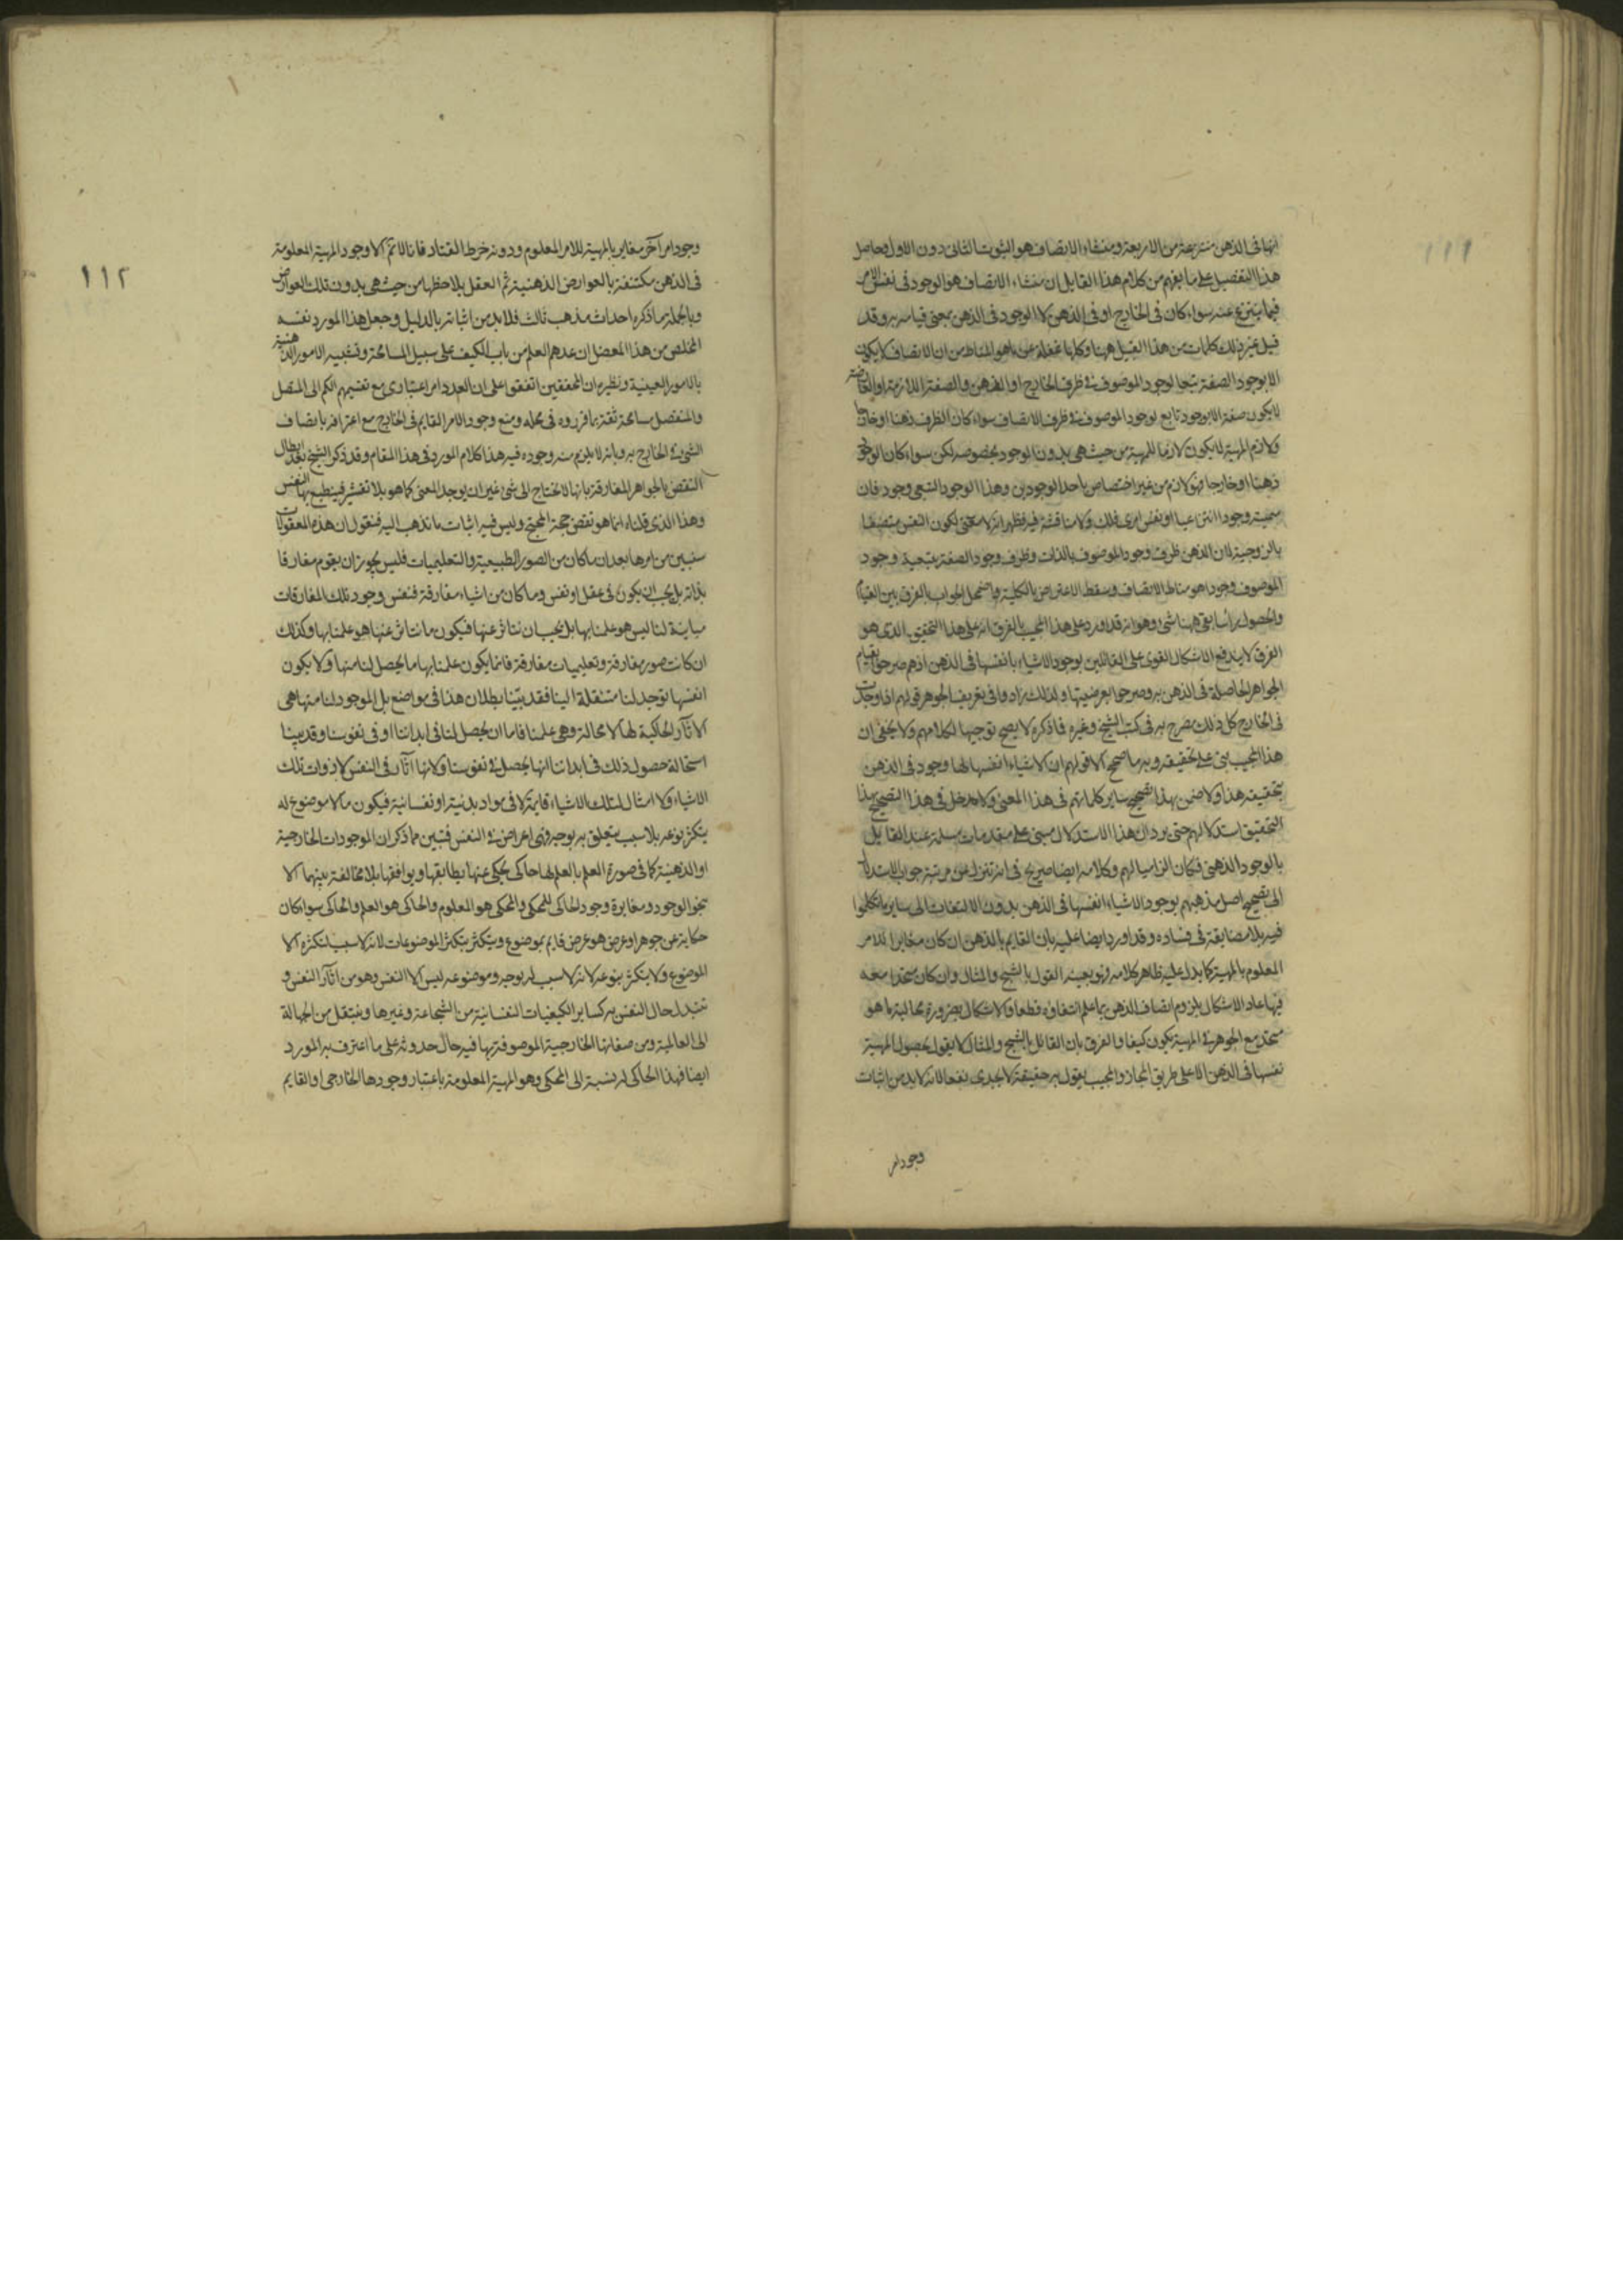 ١١١
انها فى الذهن منتزعة من الاربعة ومنشاء الاتصاف هو الثبوت الثانى دون الاول وحاصل
هذا التفصيل على ما يفهم من كلام هذا القايل ان منشاء الاتصاف هو الوجود فى نفس الامر
فيما ينتزع عنه سواء كان فى الخارج او فى الذهن لا الوجود فى الذهن بمعنى قيامه به وقد
قيل غير ذلك كلمات من هذا القبيل ههنا وكلها غفلة عن ما هو المناط من ان الاتصاف لا يكون
الا بوجود الصفة تبعا لوجود الموصوف فى ظرف الخارج او الذهن والصفة اللازمة او العارضة
لا يكون صفة الا بوجود تابع لوجود الموصوف فى ظرف الاتصاف سواء كان الظرف ذهنا او خارجا
ولازم المهية لا يكون لازما للمهية من حيث هى بدون الوجود بخصوصه لكن سواء كان الوجود
ذهنا او خارجا فهو لازم من غير اختصاص باحد الوجودين وهذا الوجود التبعى وجود فان
سميته وجودا انتزاعيا او نفس امرى فلك ولا مناقشة فيه فظهر انه لا معنى لكون النفس متصفا
بالزوجية لان الذهن ظرف وجود الموصوف بالذات وظرف وجود الصفة بتبعية وجود
الموصوف وجودا هو مناط الاتصاف وسقط الاعتراض بالكلية واضمحل الجواب بالفرق بين القيام
والحصول رأسا بقى ههنا شىء وهو انه قد اورد على هذا المجيب بالفرق انه على هذا التحقيق الذى هو
الفرق لا يندفع الاشكال القوى على القائلين بوجود الاشياء بانفسها فى الذهن اذ هم صرحوا بقيام
الجواهر الحاصلة فى الذهن به وصرحوا بعرضيتها ولذلك زادوا فى تعريف الجوهر قولهم اذا وجدت
فى الخارج كل ذلك مصرح به فى كتب الشيخ وغيره فما ذكره لا يصح توجيها لكلامهم ولا يخفى ان
هذا المجيب بنى على تحقيقه وبه ما صحح الا قولهم ان الاشياء انفسها لها وجود فى الذهن
بتحقيقه هذا ولا ضمن بهذا تصحيح ساير كلماتهم فى هذا المعنى ولا مدخل فى هذا التصحيح بهذا
التحقيق استدلالهم حتى يرد ان هذا الاستدلال مبنى على مقدمات مسلمة عند القايل
بالوجود الذهنى فكان الزاميا لهم وكلامه ايضا صريح فى انه تنزل عن مرتبة جواب الاستدلال
الى تصحيح اصل مذهبهم بوجود الاشياء انفسها فى الذهن بدون الالتفات الى ساير ما تكلموا
فيه بلا مضايقة فى فساده وقد اورد ايضا عليه بان القايم بالذهن ان كان مغايرا للامر
المعلوم بالمهية كما يدل عليه ظاهر كلامه فهو بعينه القول بالشبح والمثال وان كان متحدا معه
فيها عاد الاشكال بلزوم اتصاف الذهن بما علم انتفاؤه قطعا والاشكال بضرورة محالية ما هو
متحد مع الجوهر فى المهية يكون كيفا والفرق بان القائل بالشبح والمثال لا يقول بحصول المهية
نفسها فى الذهن الا على طريق المجاز والمجيب يقول به حقيقة لا يجدى نفعا لانه لا بد من اثبات
وجود امر
١١٢
وجود امر آخر مغاير بالمهية للامر المعلوم ودونه خرط القتاد فانا لا نم الا وجود المهية المعلومة
فى الذهن مكتنفة بالعوارض الذهنية ثم العقل يلاحظها من حيث هى بدون تلك العوارض
وبالجملة ما ذكره احداث مذهب ثالث فلا بد من اثباته بالدليل وجعل هذا المورد نفسه
المخلص من هذا المعضل ان عدهم العلم من باب الكيف على سبيل المسامحة وتشبيه الامور الذهنية
بالامور العينية ونظيره ان المحققين اتفقوا على ان العدد امر اعتبارى مع تقسيمهم الكم الى المتصل
والمنفصل مسامحة ثقة بما قرروه فى محله ومنع وجود الامر القايم فى الخارج مع اعترافه باتصاف
الشىء فى الخارج به وبانه لا يلزم منه وجوده فيه هذا كلام المورد فى هذا المقام وقد ذكر الشيخ بعد ابطال
النقض بالجواهر المفارقة بانها لا تحتاج الى شىء غير ان يوجد المعنى كما هو بلا تقشير فينطبع بها النفس
وهذا الذى قلناه انما هو نقض حجة المحتج وليس فيه اثبات ما نذهب اليه فنقول ان هذه المعقولات
سنبين من امرها بعد ان ما كان من الصور الطبيعية والتعليميات فليس يجوز ان يقوم مفارقا
بذاته بل يجب ان يكون فى عقل او نفس وما كان من اشياء مفارقة فنفس وجود تلك المفارقات
مباينة لنا ليس هو علمنا بها بل يجب ان نتاثر عنها فيكون ما نتاثر عنها هو علمنا بها وكذلك
ان كانت صور مفارقة وتعليميات مفارقة فانما يكون علمنا بها ما يحصل لنا منها ولا يكون
انفسها توجد لنا منتقلة الينا فقد بينا بطلان هذا فى مواضع بل الموجود لنا منها هى
الاثار الحاكية لها لا محالة وهى علمنا فاما ان يحصل لنا فى ابداننا او فى نفوسنا وقد بينا
استحالة حصول ذلك فى ابداننا انها يحصل فى نفوسنا ولانها اثار فى النفس لا ذوات تلك
الاشياء ولا امثال لتلك الاشياء قايمة لا فى مواد بدنية او نفسانية فيكون ما لا موضوع له
يتكثر نوعه بلا سبب يتعلق به بوجه فهى اعراض فى النفس فتبين مما ذكر ان الموجودات الخارجية
او الذهنية كما فى صورة العلم بالعلم لها حاكى يحكى عنها يطابقها ويوافقها بلا مخالفة بينهما الا
بنحو الوجود ومغايرة وجود الحاكى للمحكى والمحكى هو المعلوم والحاكى هو العلم والحاكى سواء كان
حكاية عن جوهر او عرض هو عرض قايم بموضوع ويتكثر بتكثر الموضوعات لانه لا سبب لتكثره الا
الموضوع ولا يتكثر بنوعه لانه لا سبب له بوجه وموضوعه ليس الا النفس وهو من اثار النفس و
تتبدل حال النفس به كساير الكيفيات النفسانية من الشجاعة وغيرها وينتقل من الجهالة
الى العالمية ومن صفاتها الخارجية الموصوفة بها فيه حال حدوثه على ما اعترف به المورد
ايضا فهذا الحاكى له نسبة الى المحكى وهو المهية المعلومة باعتبار وجودها الخارجى او القايم